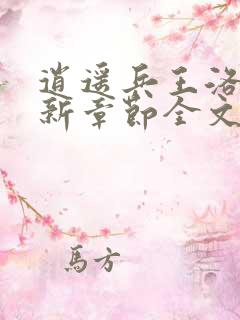 逍遥兵王洛
新章节全文
馬方